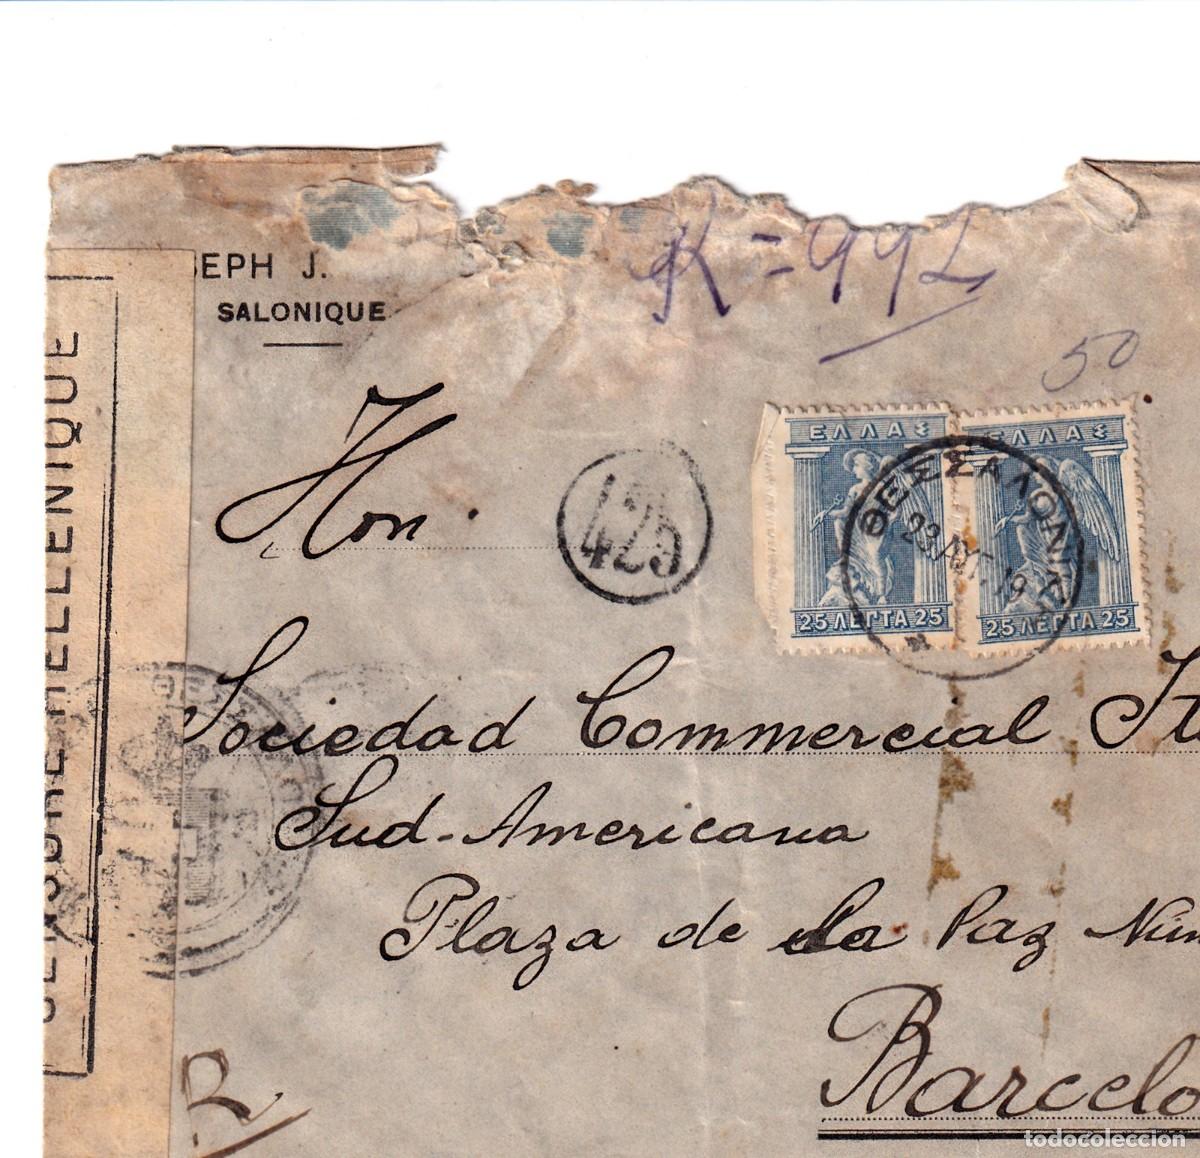 SEPH J.
SALONIQUE
R = 992
50
Hon.
425
ΕΛΛΑΣ
25 ΛΕΠΤΑ 25
ΕΛΛΑΣ
25 ΛΕΠΤΑ 25
ΘΕΣΣΑΛΟΝΙΚΗ
23 ΑΥΓ. 19
Sociedad Commercial It
Sud-Americana
Plaza de la Paz Núm
Barcelo
CENSURE HELLENIQUE
R
todocoleccion